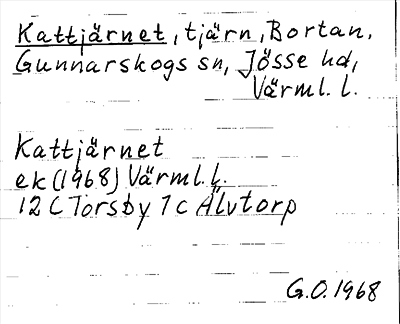 Kattjärnet, tjärn, Bortan,
Gunnarskogs sn, Jösse hd,
Värml. l.
Kattjärnet
ek (1968) Värml. l.
12 C Torsby 1 c Älvtorp
G.O. 1968